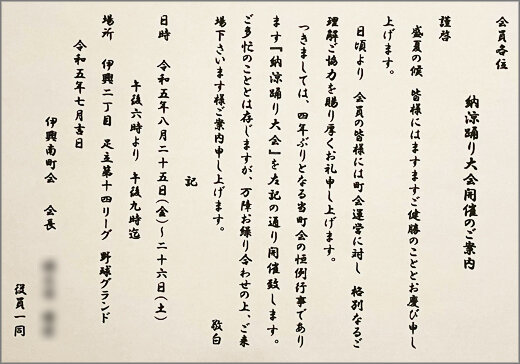 会員各位
納涼踊り大会開催のご案内
謹啓
盛夏の候 皆様にはますますご健勝のこととお慶び申し
上げます。
日頃より 会員の皆様には町会運営に対し 格別なるご
理解ご協力を賜り厚くお礼申し上げます。
つきましては、四年ぶりとなる当町会の恒例行事であり
ます『納涼踊り大会』を左記の通り開催致します。
ご多忙のこととは存じますが、万障お繰り合わせの上、ご来
場下さいます様ご案内申し上げます。
敬白
記
日時 令和五年八月二十五日(金)~二十六日(土)
午後六時より 午後九時迄
場所 伊興二丁目 足立第十四リーグ 野球グランド
令和五年七月吉日
伊興南町会 会長
役員一同